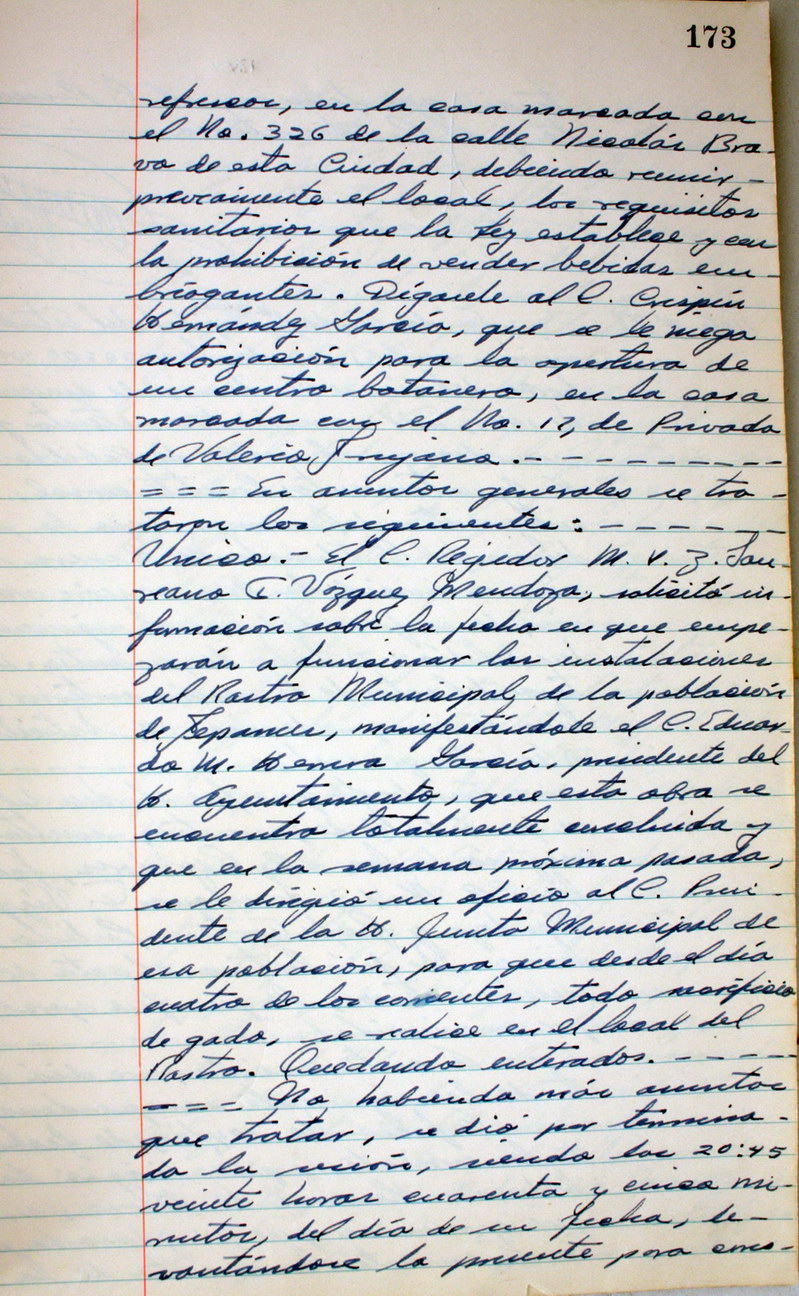 173
refrescos, en la casa marcada con
el No. 326 de la calle Nicolás Bra-
vo de esta Ciudad, debiendo reunir -
previamente el local, los requisitos
sanitarios que la Ley establece y con
la prohibición de vender bebidas em-
briagantes. Dígasele al C. Crispín
Hernández García, que se le niega
autorización para la apertura de
un centro botanero, en la casa
marcada con el No. 12, de Privada
de Valerio Trujano. - - - - - - - - -
= = = En asuntos generales se tra-
taron los siguientes: - - - - - -
Unico.- El C. Regidor M. V. Z. Lau-
reano T. Vázquez Mendoza, solicitó in-
formación sobre la fecha en que empe-
zarán a funcionar las instalaciones
del Rastro Municipal de la población
de Tepames, manifestándole el C. Eduar-
do M. Herrera García, presidente del
H. Ayuntamiento, que esta obra se
encuentra totalmente concluida y
que en la semana próxima pasada,
se le dirigió un oficio al C. Presi-
dente de la H. Junta Municipal de
esa población, para que desde el día
cuatro de los corrientes, todo sacrificio
de gado, se realice en el local del
Rastro. Quedando enterados. - - - -
= = = No habiendo más asuntos
que tratar, se dió por termina-
da la sesión, siendo las 20:45
veinte horas cuarenta y cinco mi-
nutos, del día de su fecha, le-
vantándose la presente para cons-